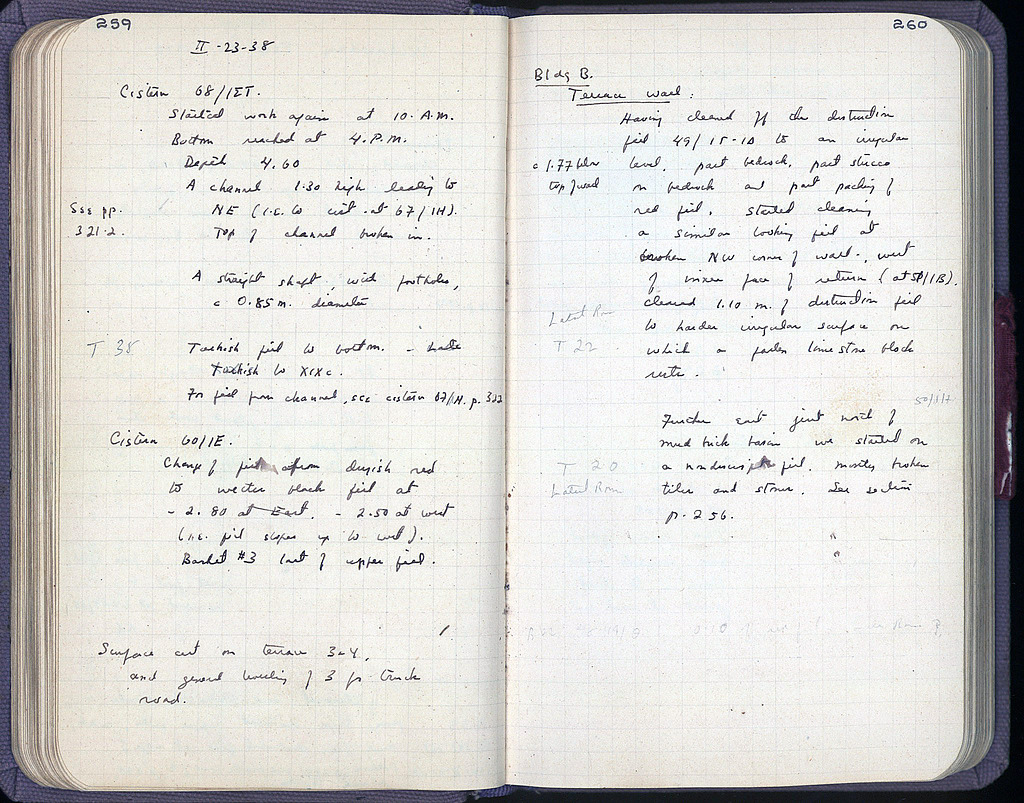 259
II-23-38
Cistern 68/IET.
Started work again at 10 A.M.
Bottom reached at 4.P.M.
Depth 4.60
A channel 1.30 high leading to
See pp. NE (i.e. to cist. at 67/IH).
321-2. Top of channel broken in.
A straight shaft, with footholes,
c 0.85 m. diameter
T 38 Turkish fill to bottom. - Late
Turkish to XIXc.
For fill from channel, see cistern 67/IH. p. 322
Cistern 60/IE.
Change of fill from dryish red
to wetter black fill at
- 2.80 at East. - 2.50 at west
(i.e. fill slopes up to west).
Basket #3 last of upper fill.
Surface cut on terrace 3-4,
and general leveling of 3 for truck
road.
260
Bldg B.
Terrace wall:
Having cleaned off the destruction
fill 49/15-10 to an irregular
c 1.77 below level, part bedrock, part stucco
top of wall on bedrock and part packing of
red fill, started cleaning
a similar looking fill at
broken NW corner of wall, west
of inner face of return (at 50/IB).
cleared 1.10 m. of destruction fill
Latest Rom to harder irregular surface on
T 22 which a limestone block
rests.
Further east just north of
mud brick basin we started on
T 20 a nondescript fill, mostly broken
Latest Rom tiles and stones. See section
p. 256.
"
"